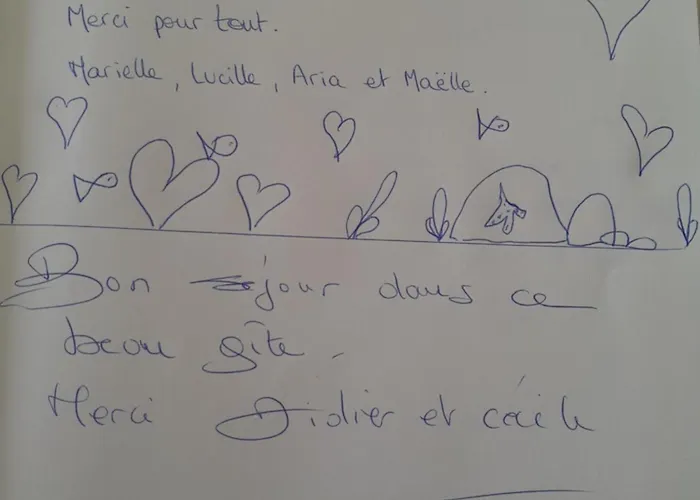 Merci pour tout.
Marielle, Lucille, Aria et Maëlle.
Bon séjour dans ce
beau gîte.
Merci Didier et Cécile